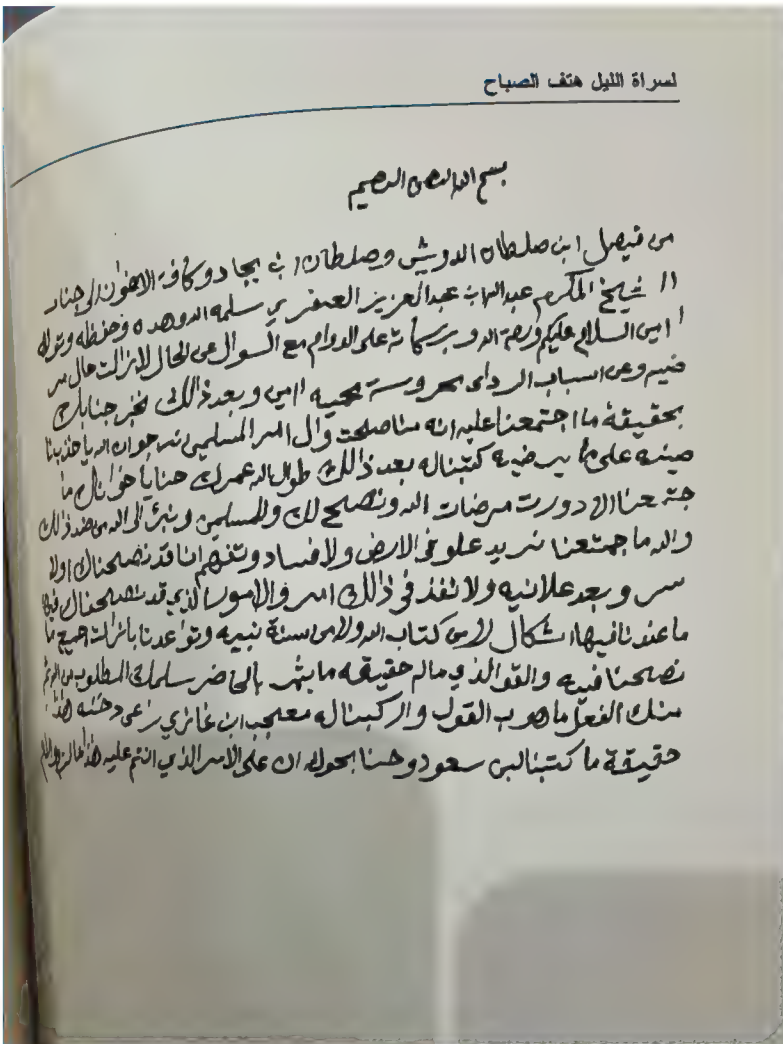 لسراة الليل هتف الصباح
بسم الله الرحمن الرحيم
من فيصل ابن صلطان الدويش وصلطان ابن بجاد وكافة الاخوان الى جناب
اا شيخ المكرم عبدالله ابن عبدالعزيز العنقري سلمه الله وهداه وحفظه وتولاه
امين السلام عليكم ورحمة الله وبركاته على الدوام مع السوال عن الحال لازالت حال سر
ضيه وعن اسباب الرداى محروسة محميه اامين وبعد ذالك نخبر جنابك
بحقيقة ما اجتمعنا عليه انه مناصلحت وال امر المسلمين نرجوا الله ياخذ بنا
صيته على ما يرضيه كتبناله بعد ذالك طول الله عمرك حنا يا خوانك ما
جتمعنا الا دورت مرضات الله ونصح لك وللمسلمين ونبرى الى الله من ضد ذالك
والله ما جمتعنا نريد علو في الارض ولا فساد وتفهم اننا قد نصحناك اولا
سر وبعد علانيه ولا تفذ في ذالك امر والامور الذي قد نصحناك فيها
ما عندنا فيها اشكال لامن كتاب الله ولا من سنة نبيه وتواعدنا بازالت جميع ما
نصحنا فيه والقو الذي ماله حقيقه ما يثمر بالحاضر سلمك الله المطلوب
منك الفعل ماهوب القول واركبناله معجب ابن غازي هذا
حقيقة ما كتبنا لبن سعود وحنا بحول الله ان على الامر الذي انتم عليه هذا مالزم والسلام